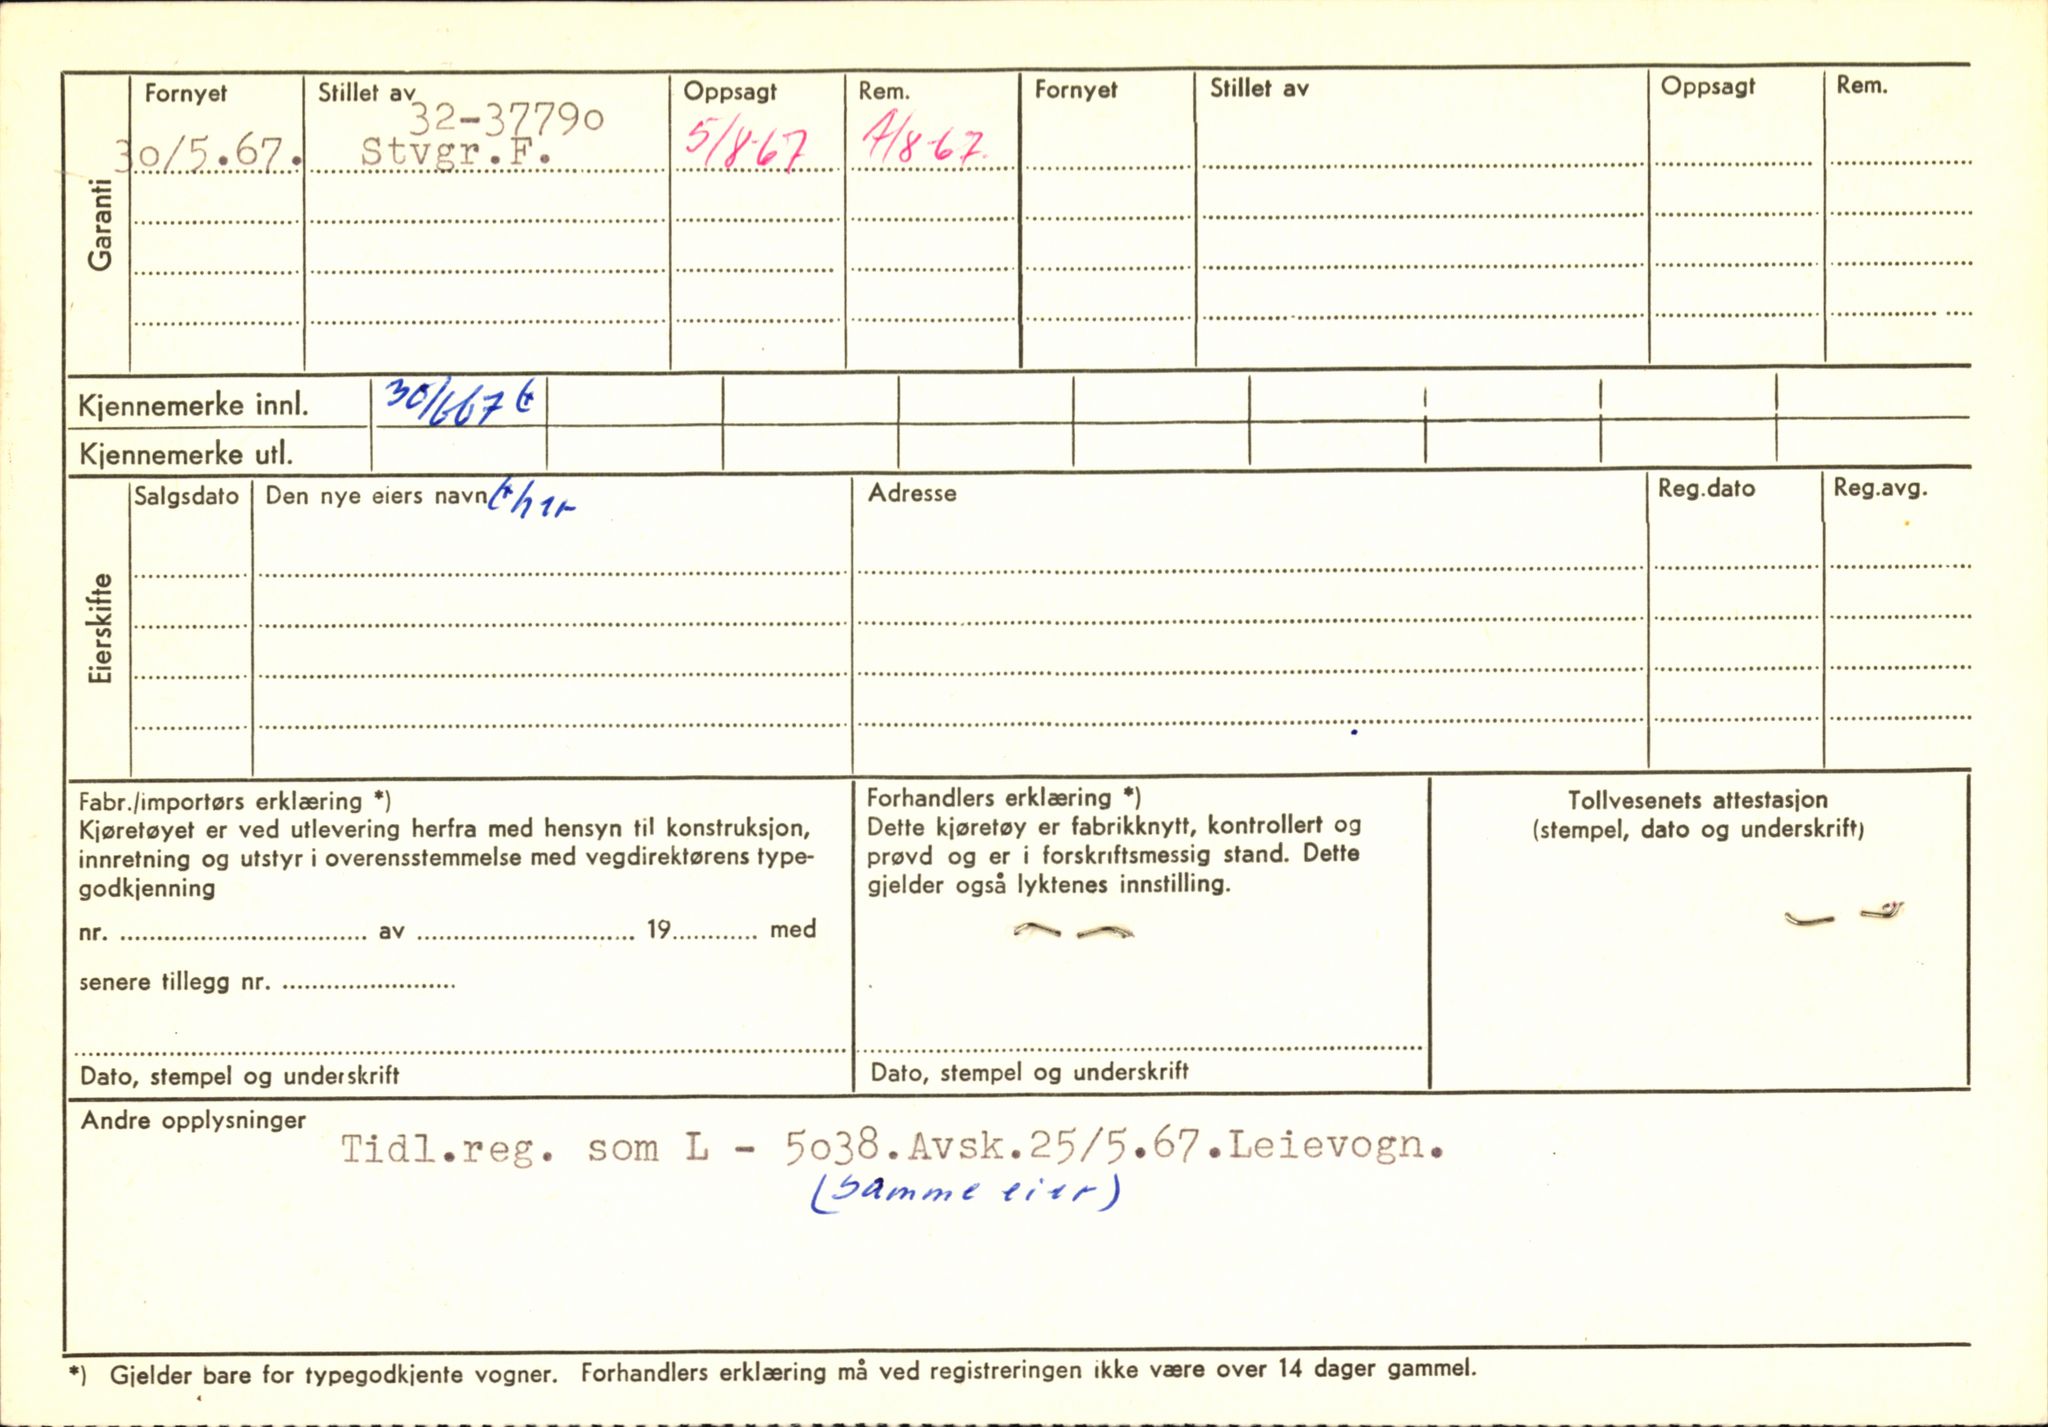 Garanti
Fornyet Stillet av Oppsagt Rem. Fornyet Stillet av Oppsagt Rem.
32-3779o
3o/5.67. Stvgr.F. 5/8-67 7/8-67.
Kjennemerke innl. 30/6 67
Kjennemerke utl.
Eierskifte
Salgsdato Den nye eiers navn Adresse Reg.dato Reg.avg.
Fabr./importørs erklæring *)
Kjøretøyet er ved utlevering herfra med hensyn til konstruksjon,
innretning og utstyr i overensstemmelse med vegdirektørens type-
godkjenning
nr. av 19 med
senere tillegg nr.
Dato, stempel og underskrift
Forhandlers erklæring *)
Dette kjøretøy er fabrikknytt, kontrollert og
prøvd og er i forskriftsmessig stand. Dette
gjelder også lyktenes innstilling.
Dato, stempel og underskrift
Tollvesenets attestasjon
(stempel, dato og underskrift)
Andre opplysninger
Tidl.reg. som L - 5o38.Avsk.25/5.67.Leievogn.
(Samme eier)
*) Gjelder bare for typegodkjente vogner. Forhandlers erklæring må ved registreringen ikke være over 14 dager gammel.